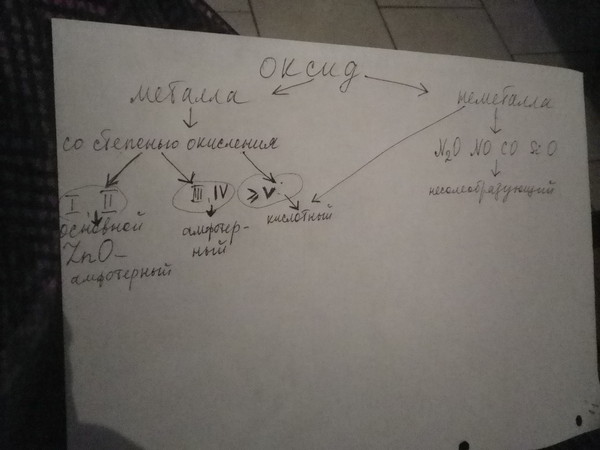 оксид
металла
неметалла
со степенью окисления
N₂O NO CO SiO
несолеобразующий
I II
III, IV
≥ V
основной
амфотер-
ный
кислотный
ZnO –
амфотерный